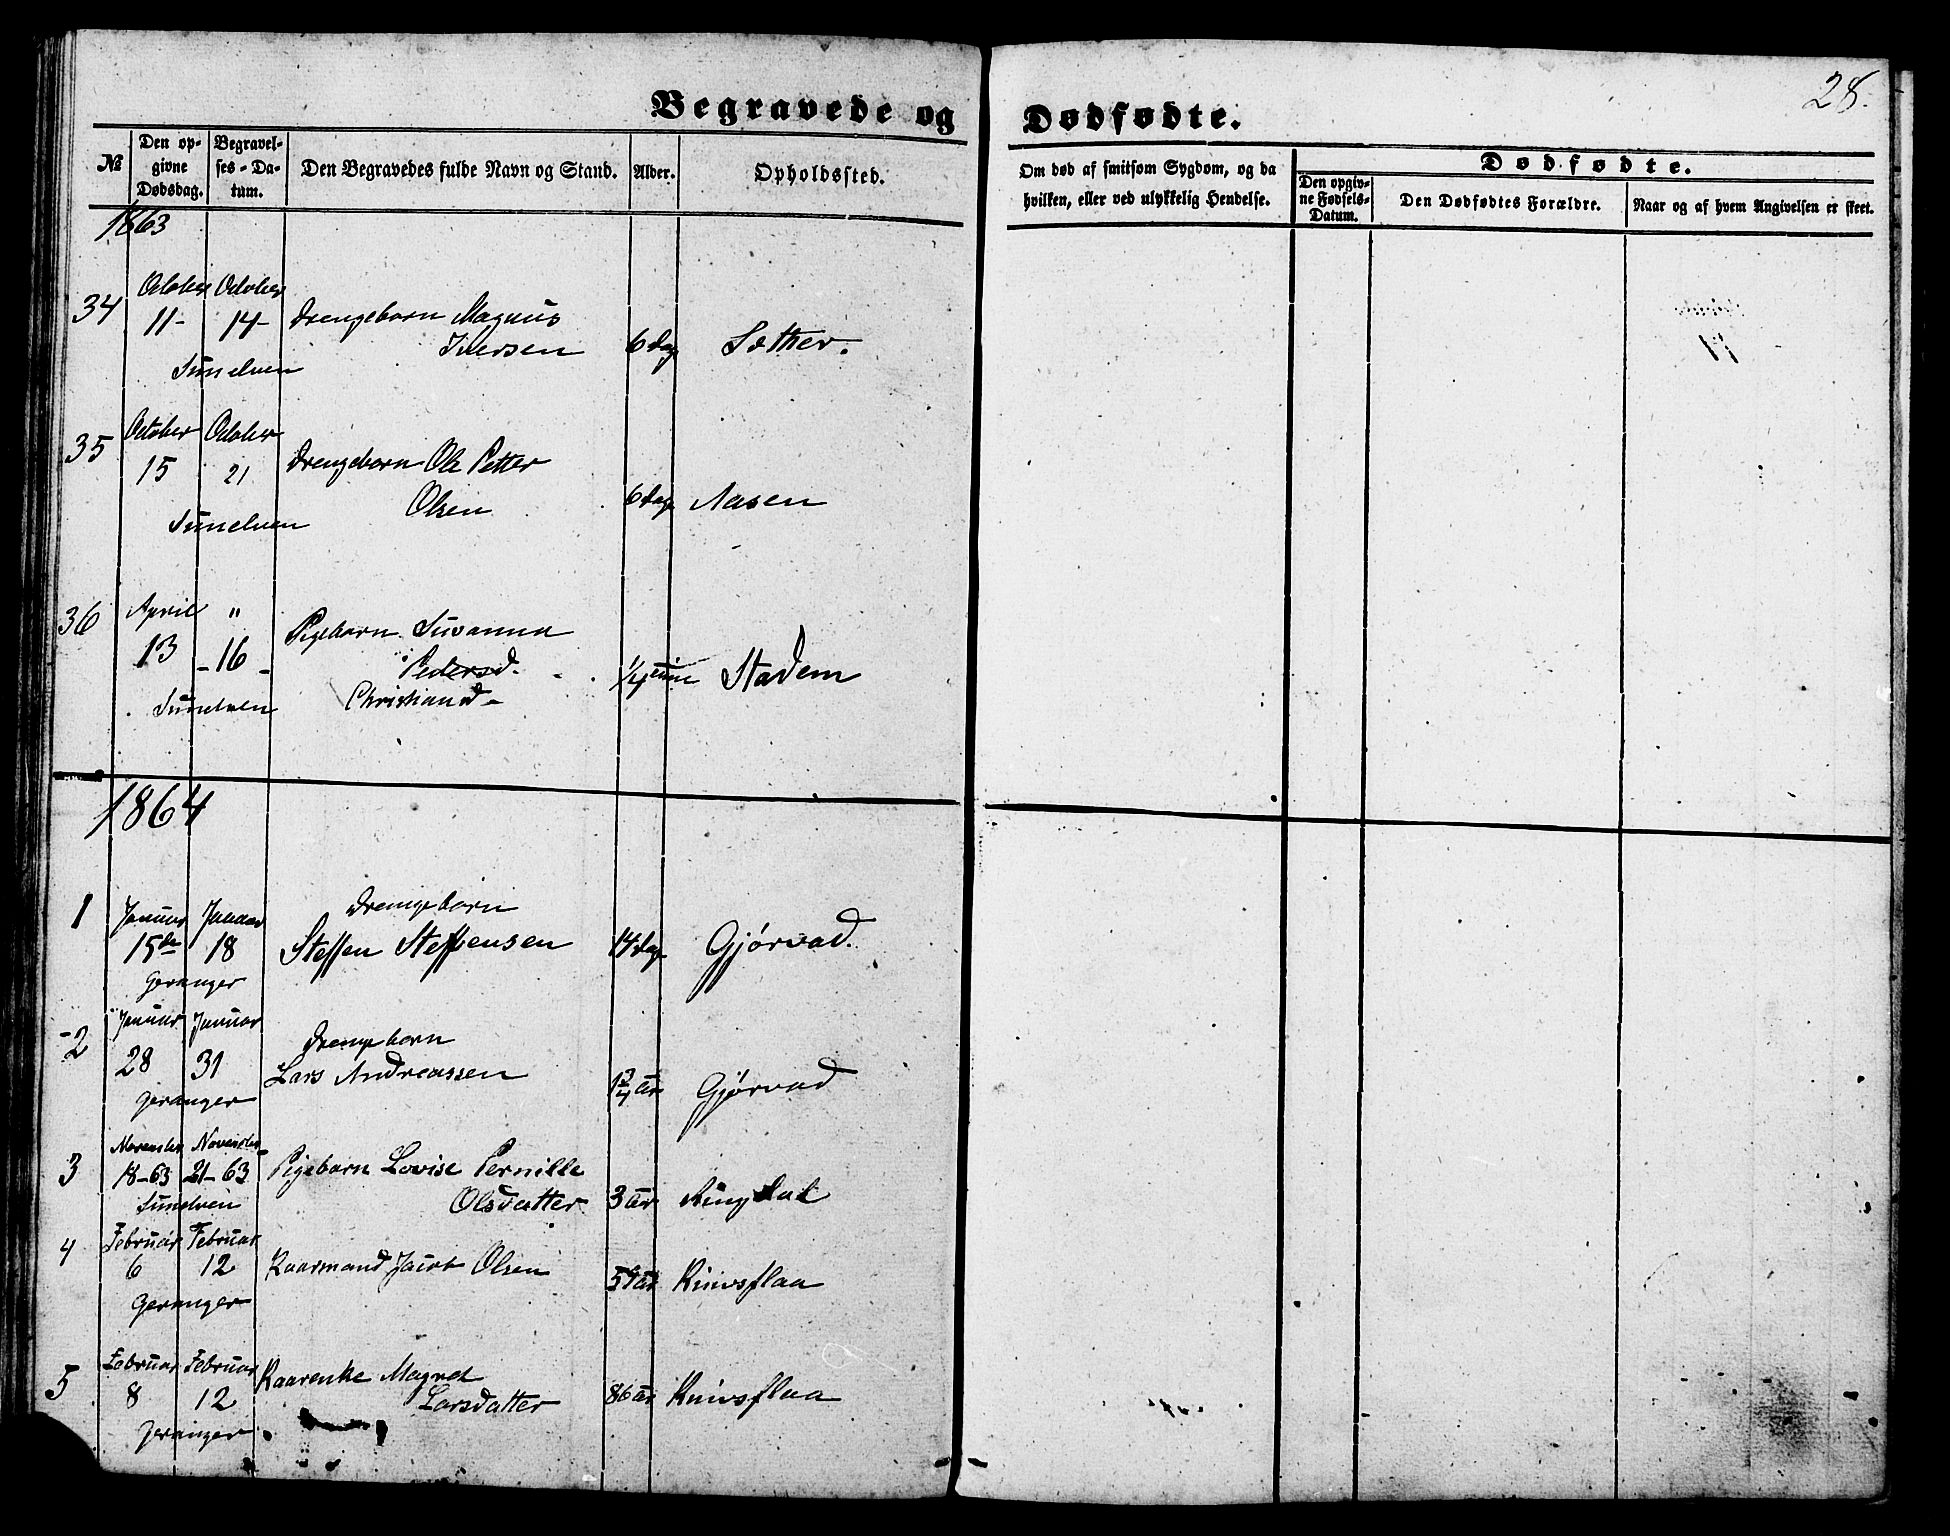 28.
Begravede og Dødfødte.
No
Den opgivne Dødsdag.
Begravelses-Datum.
Den Begravedes fulde Navn og Stand.
Alder.
Opholdssted.
Om død af smitsom Sygdom, og da hvilken, eller ved ulykkelig Hendelse.
Dødfødte.
Den opgivne Fødsels-Datum.
Den Dødfødtes Forældre.
Naar og af hvem Angivelsen er skeet.
1863
34 October 11- October 14- Drengebarn Magnus
Iversen 6 dag Sæther.
Sunelven
35 October 15 October 21 Drengebarn Ole Petter
Olsen 6 dag Aasen
Sunelven
36 April 13 " -16- Pigebarn Susanna
Pedersd.
Christiansd- 1/4 time Stadem
Sunelven
1864
1 Januar 15de Januar 18 Drengebarn
Steffen Steffensen 14 dag Gjørvad.
Geranger
2 Januar 28 Januar 31 Drengebarn
Lars Andreassen 1 3/4 aar Gjørvad
Geranger
3 November 18-63 November 21-63 Pigebarn Lovise Pernille
Olsdatter 3 aar Ringdal
Sunelven
4 Februar 6 Februar 12 Kaarmand Jacob Olsen 59 aar Knivsflaa
Geranger
5 Februar 8 Februar 12 Kaarenke Magret
Larsdatter 86 aar Knivsflaa
Geranger